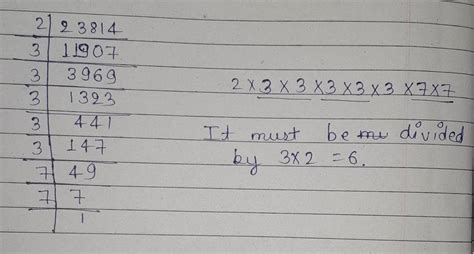 2 | 23814
3 | 11907
3 | 3969
3 | 1323
3 | 441
3 | 147
7 | 49
7 | 7
1
2 × 3 × 3 × 3 × 3 × 3 × 7 × 7
It must be divided
by 3×2 = 6.